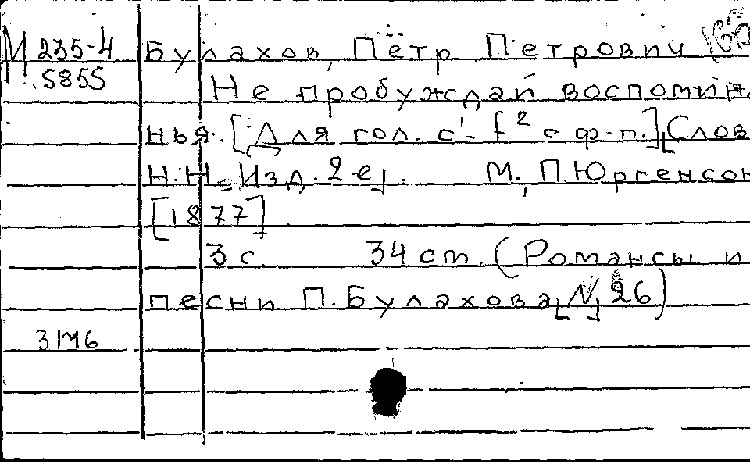 М 235-4 Булахов, Пётр Петрович
5855 Не пробуждай воспомина
нья. [Для гол. с¹-f² с ф-п.] Слов
Н.Н. Изд. 2е]. М., П. Юргенсон
[1877].
3 с. 34 ст. (Романсы и
песни П. Булахова, [№] 26)
31М6